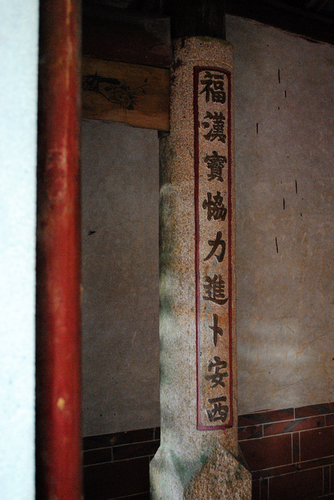 福漢寶協力進卜安西